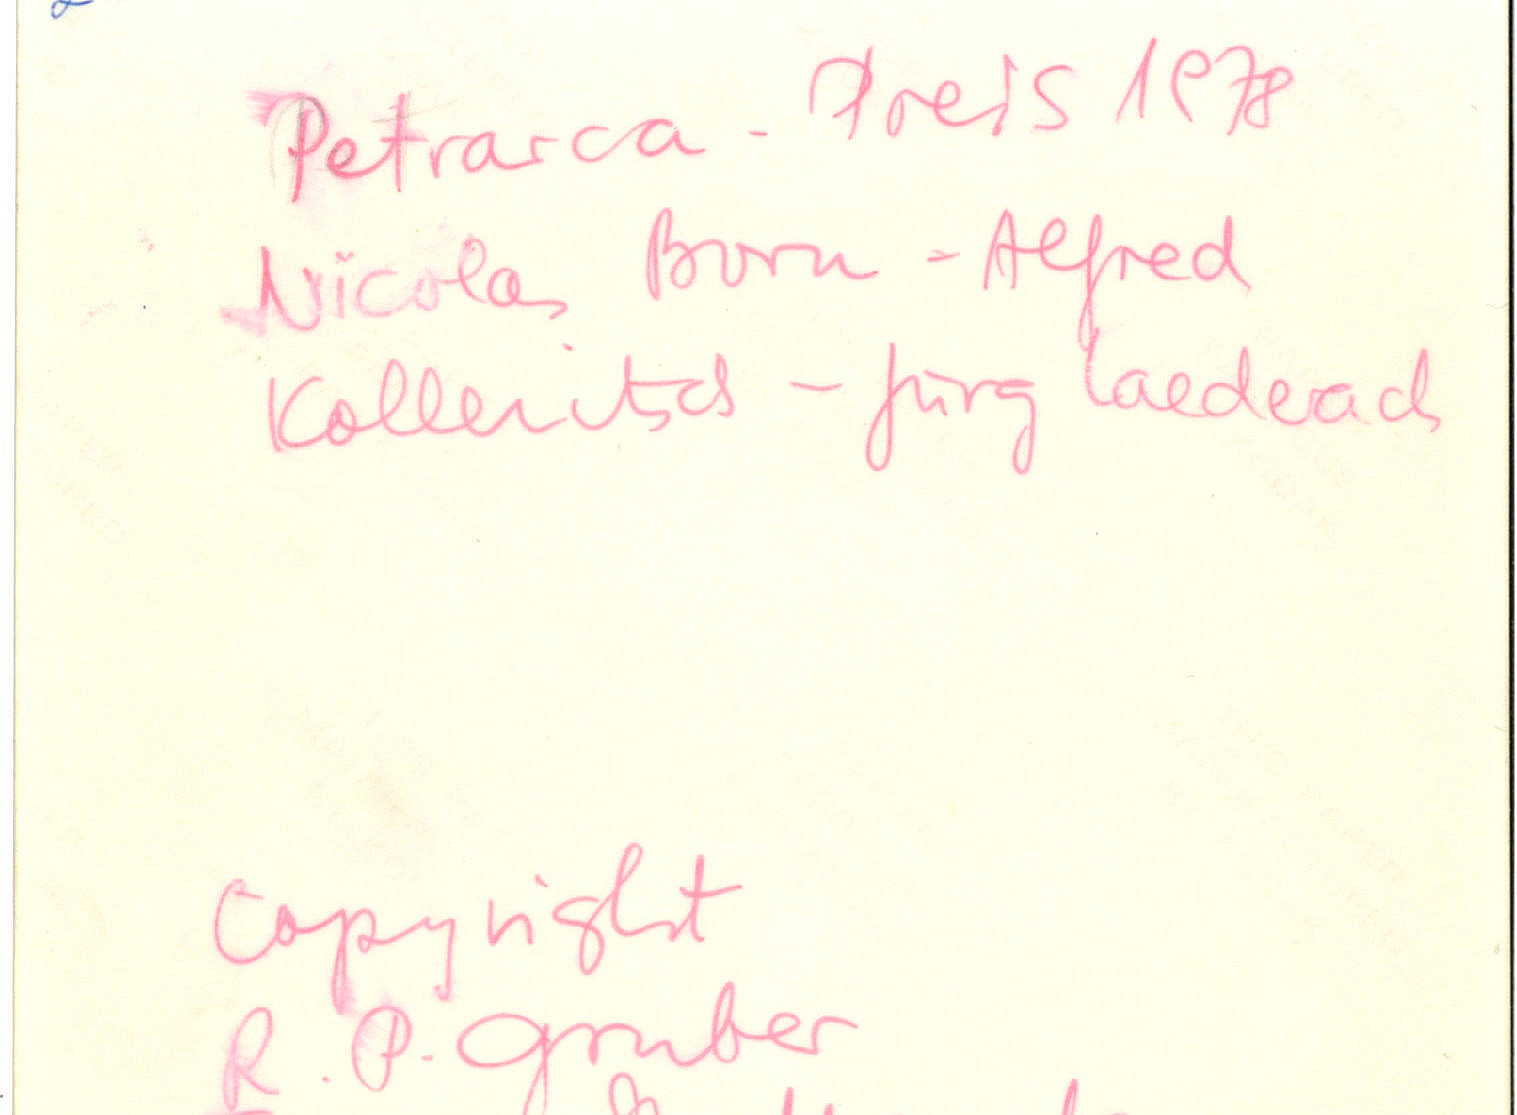 Petrarca - Preis 1978
Nicolas Born - Alfred
Kolleritsch - Jürg Laederach
Copyright
R. P. Gruber